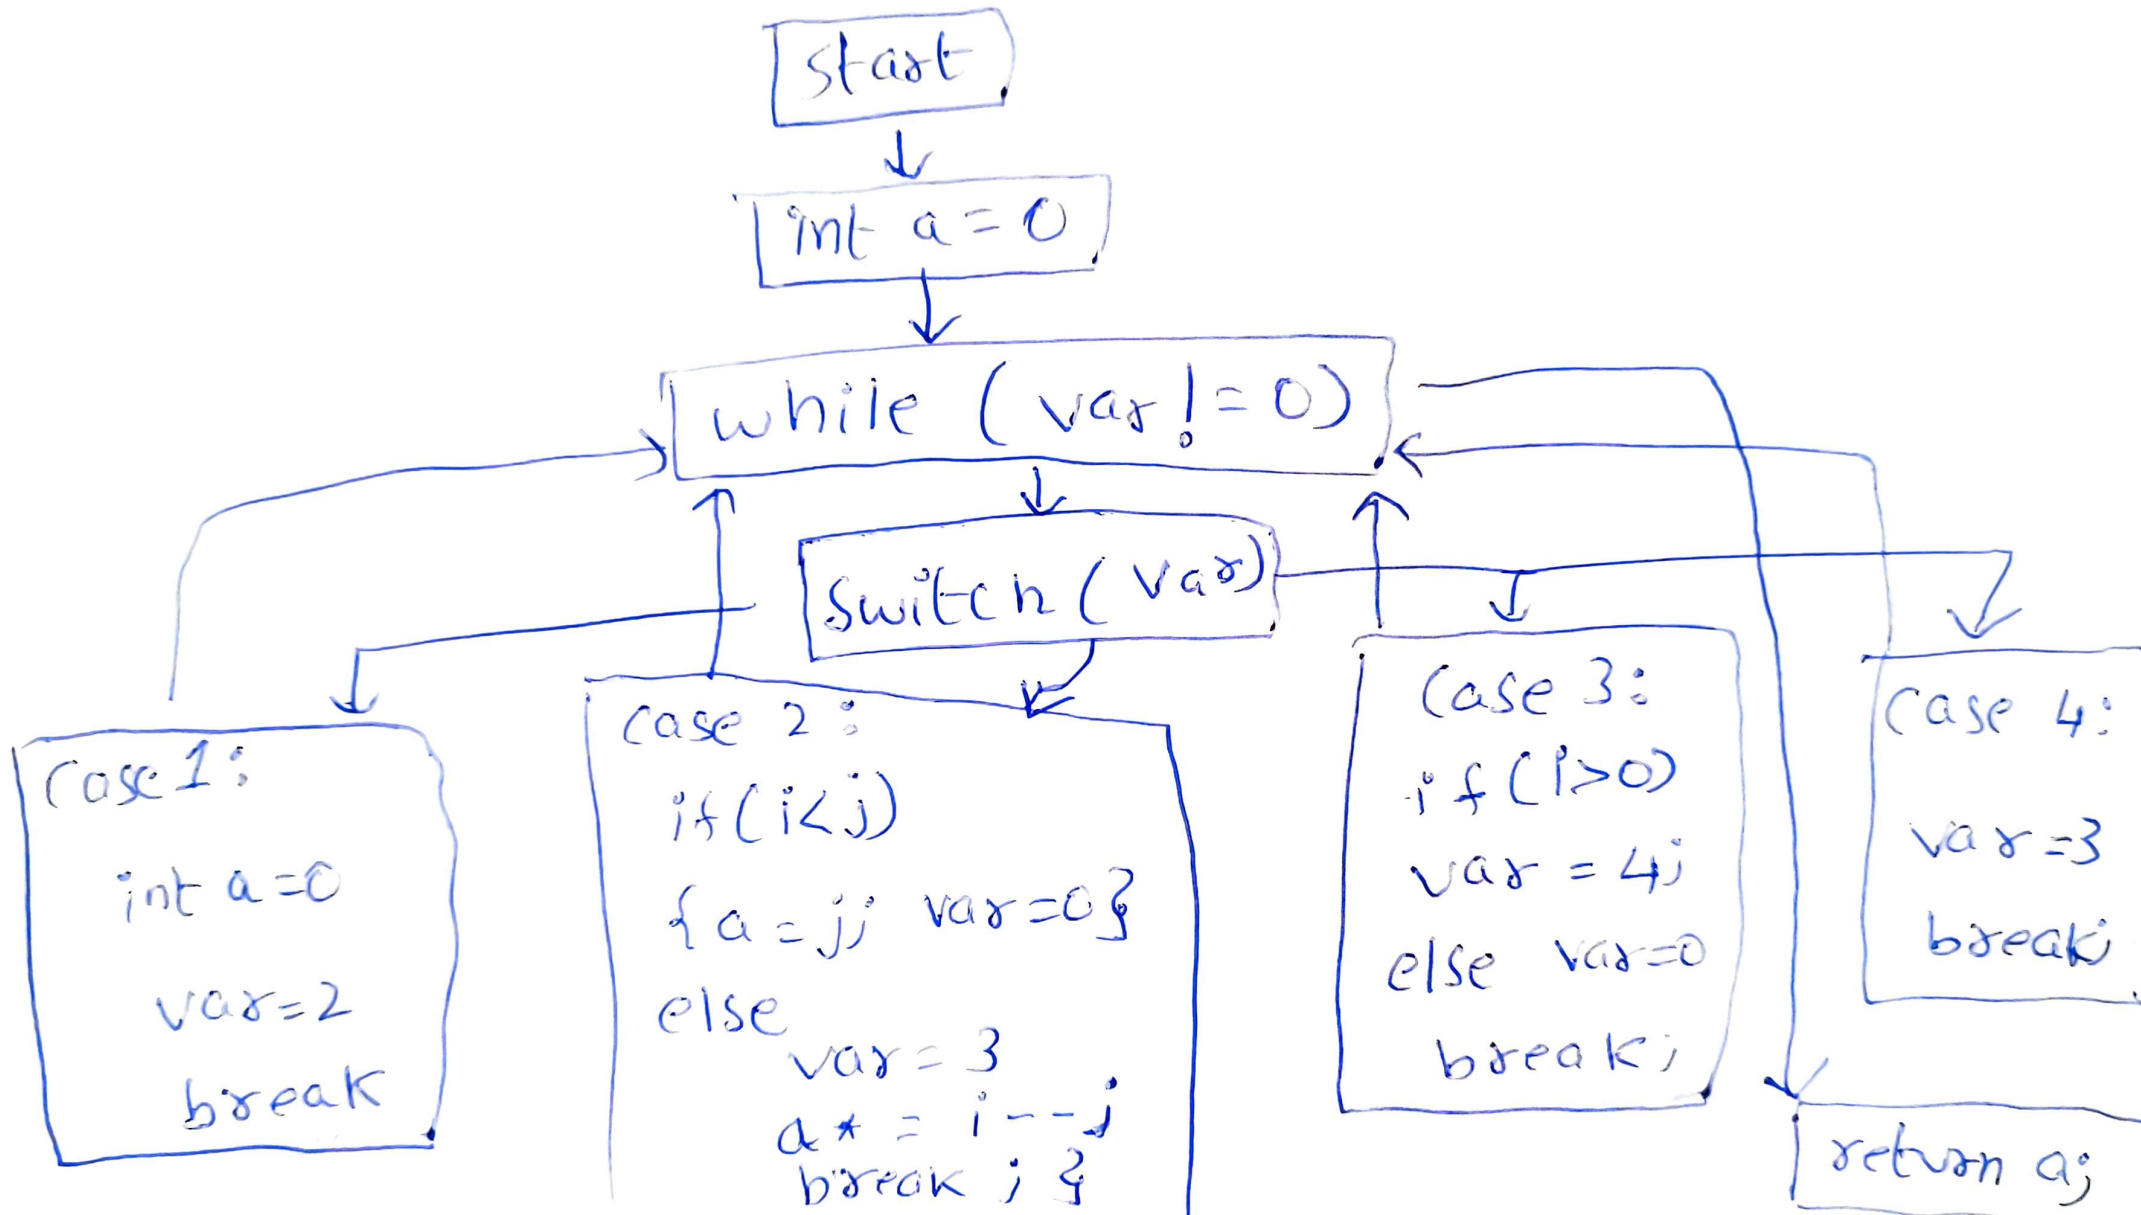 start
int a = 0
while (var != 0)
switch (var)
case 1:
int a = 0
var = 2
break
case 2:
if (i < j)
{ a = j; var = 0 }
else
var = 3
a * = i - - j
break ; }
case 3:
if (i > 0)
var = 4;
else var = 0
break ;
case 4:
var = 3
break;
return a;